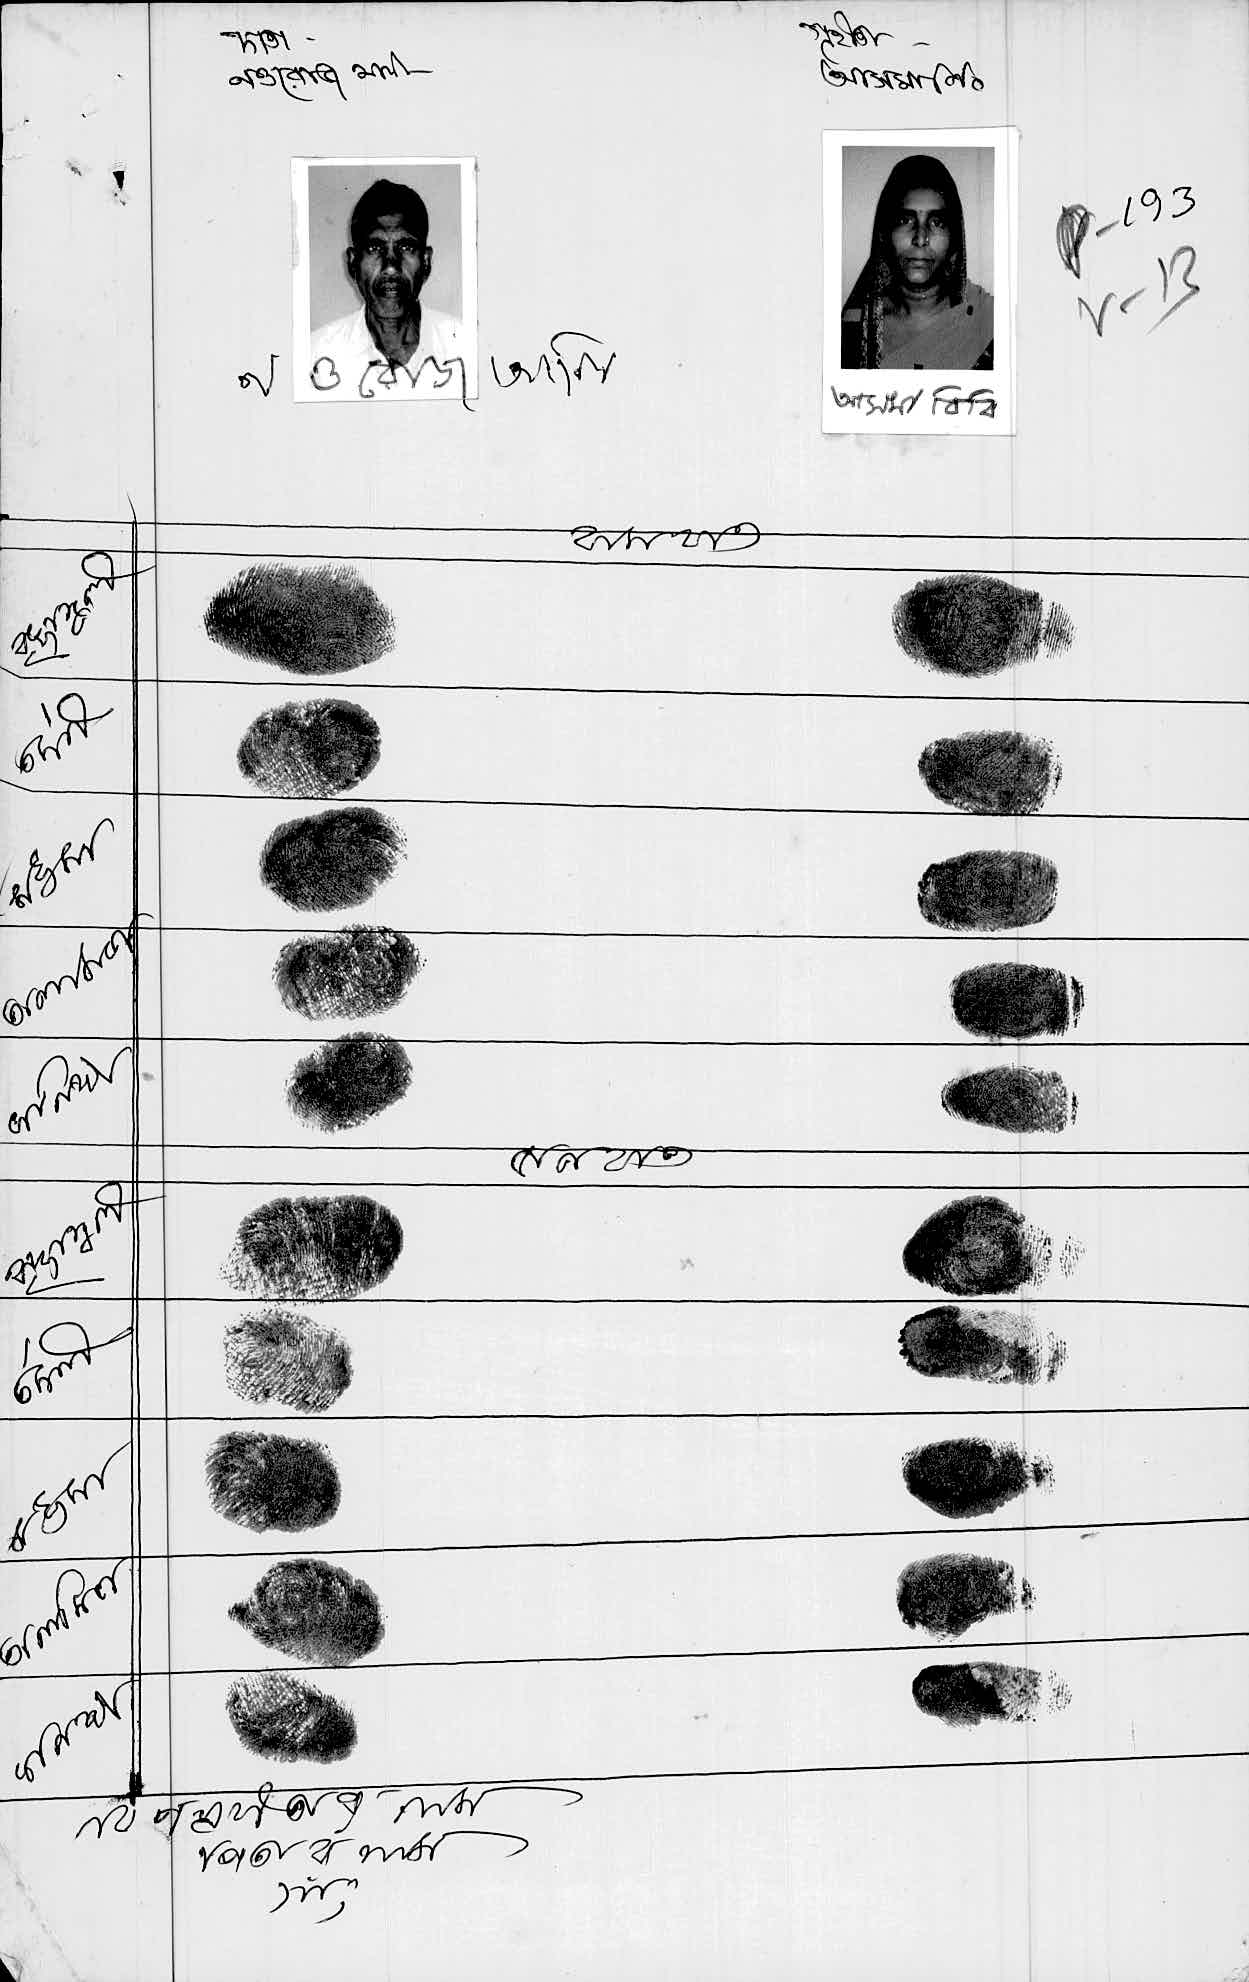 দাতা -
নওরোজ আলি
গ্রহীতা -
আসমা বিবি
P-193
V-13
ন ও রোজ আলি
আসমা বিবি
বাম হাত
বৃদ্ধাঙ্গুলী
তর্জনী
মধ্যমা
অনামিকা
কনিষ্ঠা
ডান হাত
বৃদ্ধাঙ্গুলী
তর্জনী
মধ্যমা
অনামিকা
কনিষ্ঠা
নাম
পিতার নাম
সাং